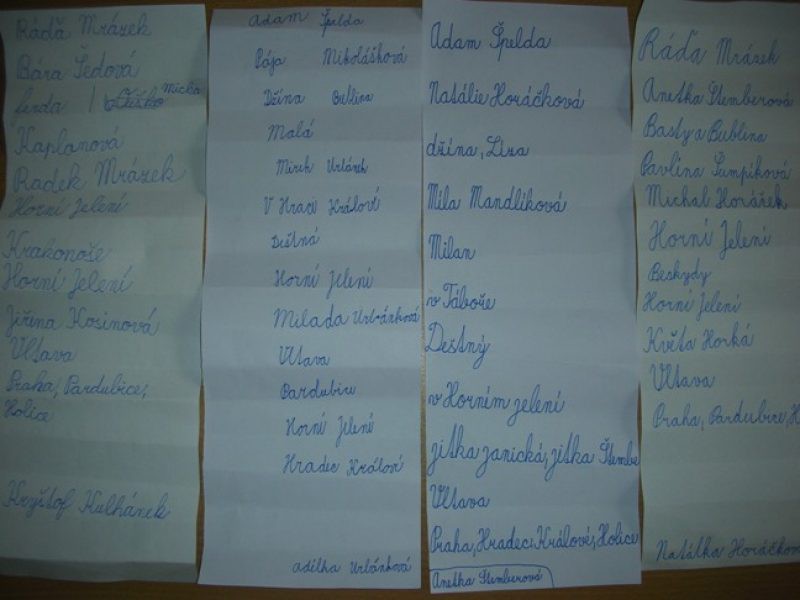 Ráďa Mrázek
Bára Šedová
Kaplanová
Radek Mrázek
Horní Jelení
Krakonoše
Horní Jelení
Jiřina Kosinová
Vltava
Praha, Pardubice,
Holice
Kryštof Kulhánek
Adam Špelda
Pája Mikolášková
Džína Bublina
Malá
Mirek Urbánek
V Hraci Králové
Deštná
Horní Jelení
Milada Urbánková
Vltava
Pardubice
Horní Jelení
Hradec Králové
Adélka Urbánková
Adam Špelda
Natálie Horáčková
džína, Líza
Míla Mandlíková
Milan
v Táboře
Deštný
v Horním jelení
jitka janická, jitka Štembe
Vltava
Praha, Hradec Králové, Holice
Anetka Štemberová
Ráďa Mrázek
Anetka Štemberová
Basty a Bublina
Pavlína Šumpíková
Michal Horáček
Horní Jelení
Beskydy
Horní Jelení
Květa Horká
Vltava
Praha, Pardubice, H
Natálka Horáčkov